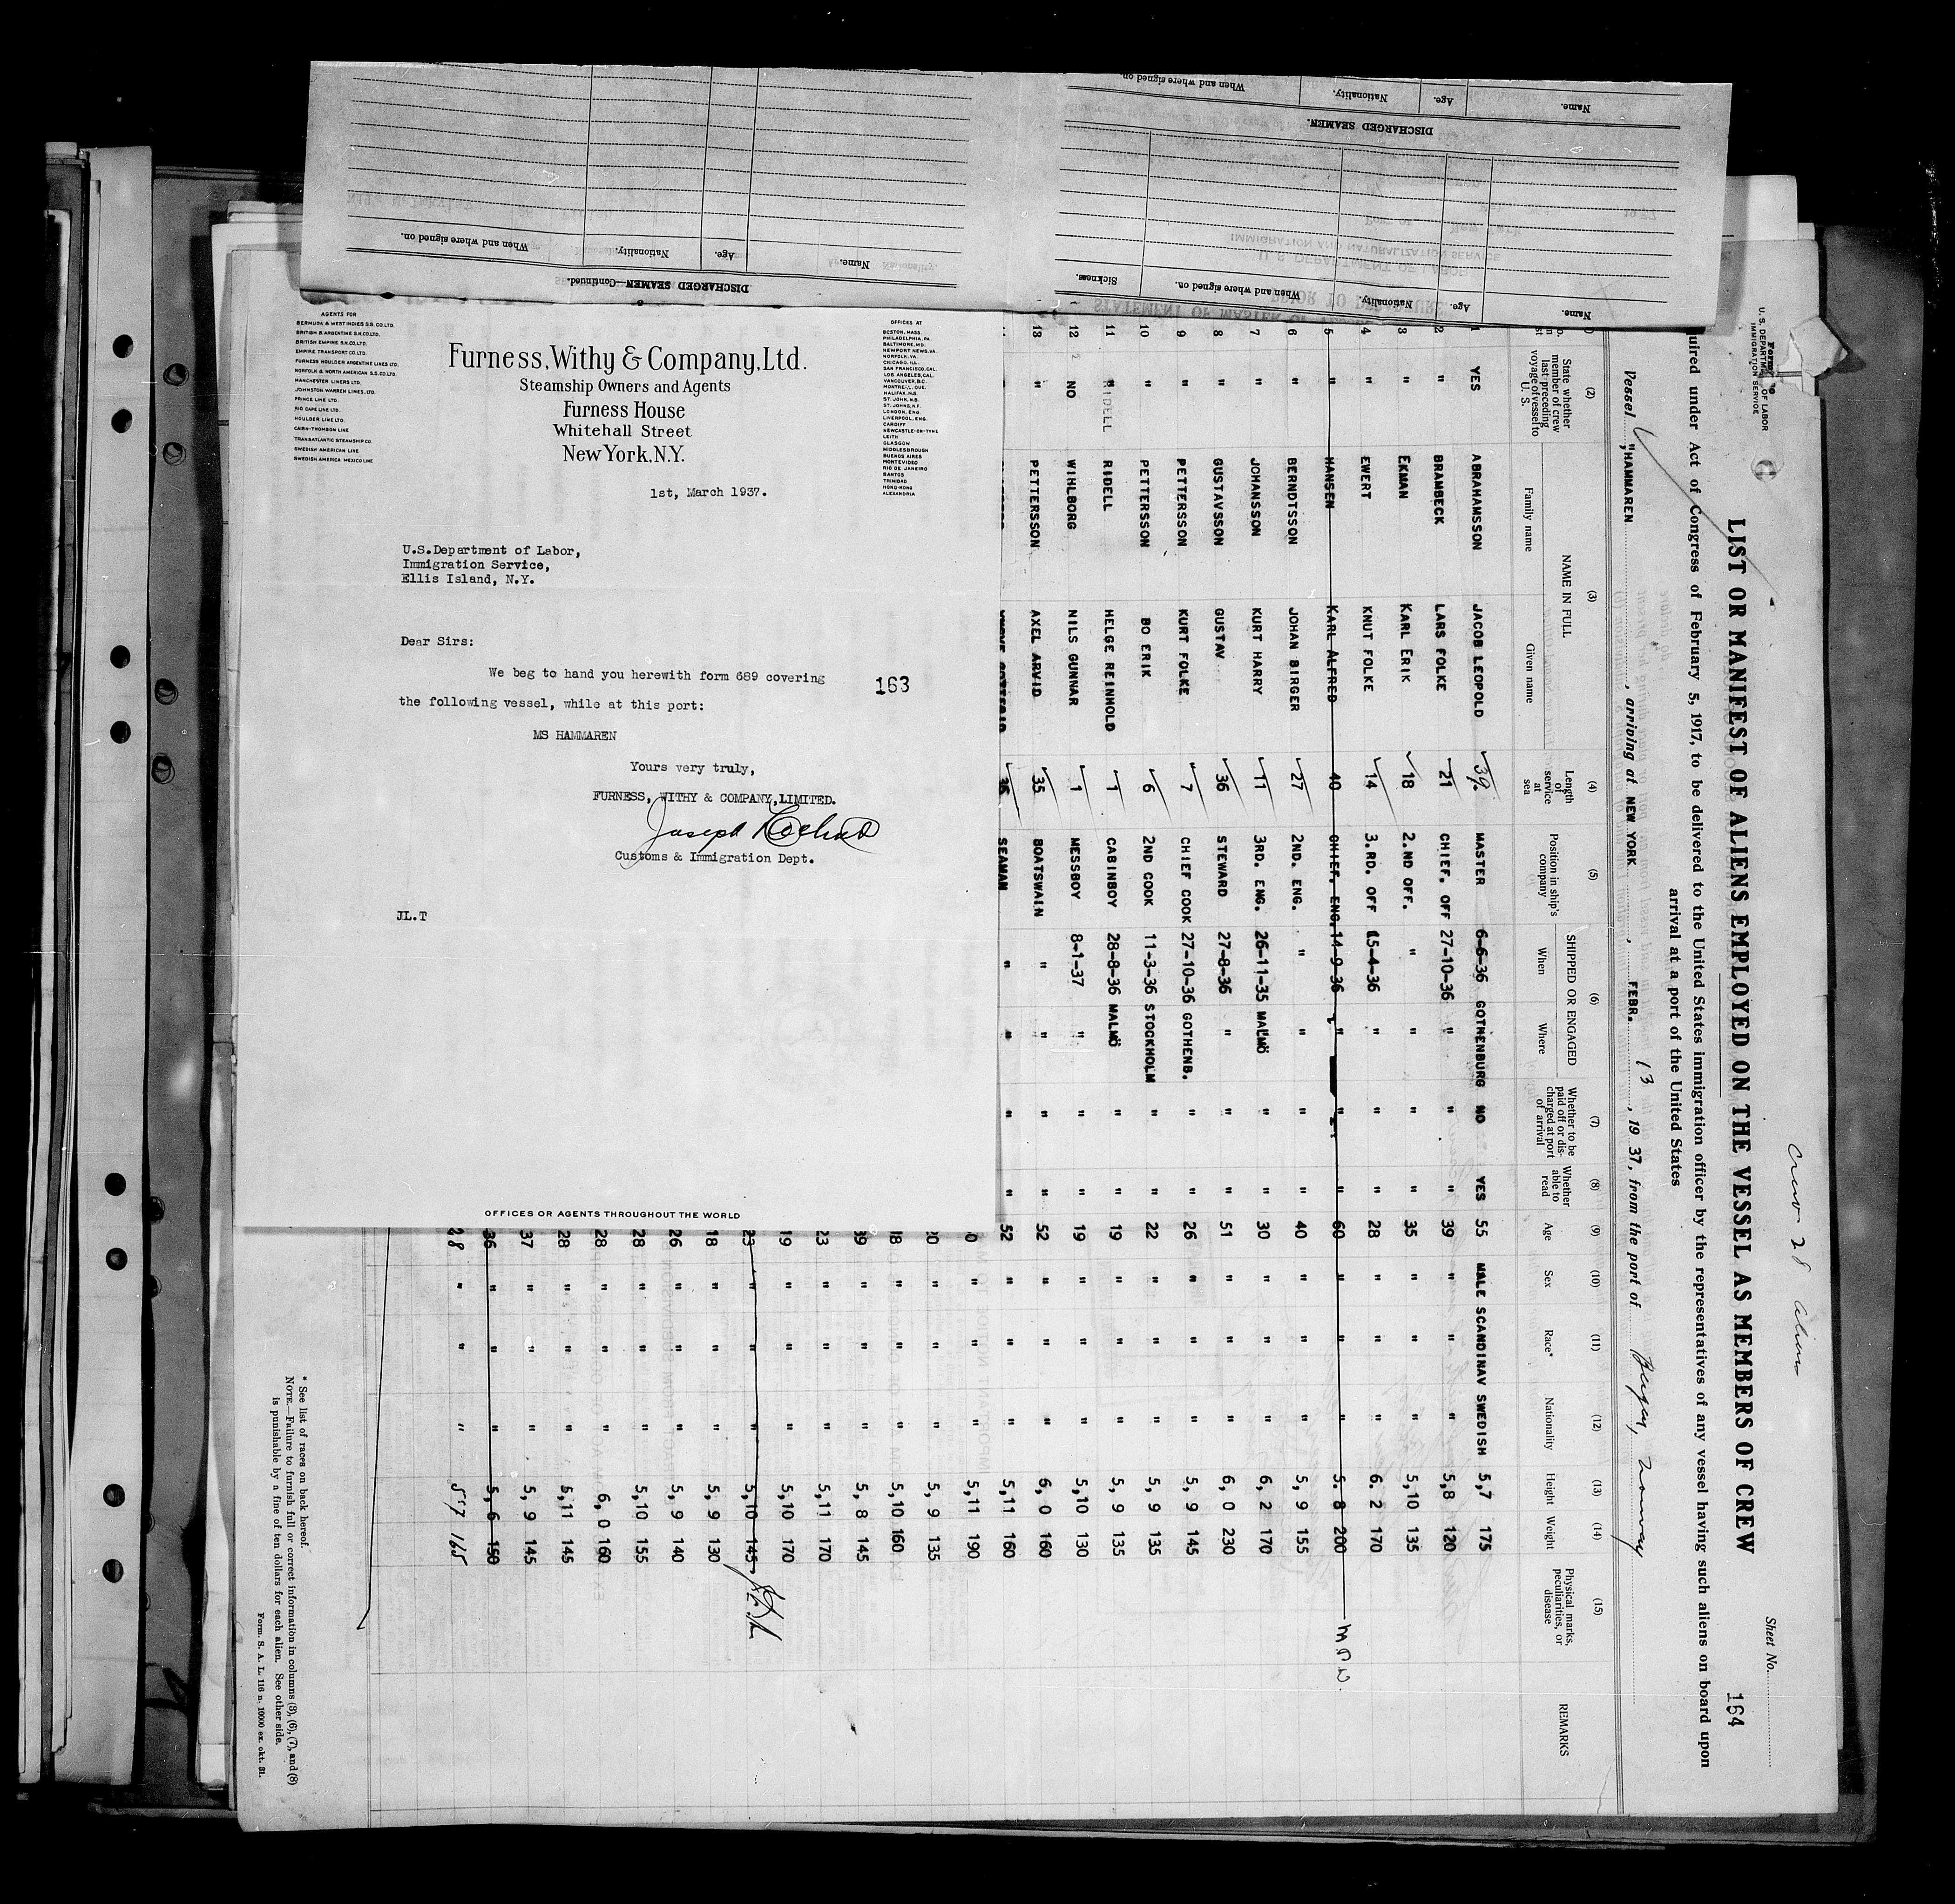 Name.
Age.
Nationality.
When and where signed on.
DISCHARGED SEAMEN.
Name.
Age.
Nationality.
When and where signed on.
Sickness.
DISCHARGED SEAMEN—Continued.
Name.
Age.
Nationality.
When and where signed on.
AGENTS FOR
BERMUDA & WEST INDIES S.S. CO. LTD.
BRITISH & ARGENTINE S.N. CO. LTD.
BRITISH EMPIRE S.N. CO. LTD.
EMPIRE TRANSPORT CO. LTD.
FURNESS HOULDER ARGENTINE LINES LTD.
NORFOLK & NORTH AMERICAN S.S. CO. LTD.
MANCHESTER LINERS LTD.
JOHNSTON WARREN LINES, LTD.
PRINCE LINE LTD.
RIO CAPE LINE LTD.
HOULDER LINE LTD.
CAIRN-THOMSON LINE
TRANSATLANTIC STEAMSHIP CO.
SWEDISH AMERICAN LINE
SWEDISH AMERICA MEXICO LINE
Furness, Withy & Company, Ltd.
Steamship Owners and Agents
Furness House
Whitehall Street
New York, N.Y.
OFFICES AT
BOSTON, MASS.
PHILADELPHIA, PA.
BALTIMORE, MD.
NEWPORT NEWS, VA.
NORFOLK, VA.
CHICAGO, ILL.
SAN FRANCISCO, CAL.
LOS ANGELES, CAL.
VANCOUVER, B.C.
MONTREAL, QUE.
HALIFAX, N.S.
ST. JOHN, N.B.
ST. JOHNS, N.F.
LONDON, ENG.
LIVERPOOL, ENG.
CARDIFF
NEWCASTLE-ON-TYNE
LEITH
GLASGOW
MIDDLESBROUGH
BUENOS AIRES
MONTEVIDEO
RIO DE JANEIRO
SANTOS
TRINIDAD
HONG-KONG
ALEXANDRIA
1st, March 1937.
U.S.Department of Labor,
Immigration Service,
Ellis Island, N.Y.
Dear Sirs:
We beg to hand you herewith form 689 covering
163
the following vessel, while at this port:
MS HAMMAREN
Yours very truly,
FURNESS, WITHY & COMPANY, LIMITED.
Customs & Immigration Dept.
JL.T
OFFICES OR AGENTS THROUGHOUT THE WORLD
Crew 28 aliens
U. S. DEPARTMENT OF LABOR
IMMIGRATION SERVICE
Sheet No.
164
LIST OR MANIFEST OF ALIENS EMPLOYED ON THE VESSEL AS MEMBERS OF CREW
uired under Act of Congress of February 5, 1917, to be delivered to the United States immigration officer by the representatives of any vessel having such aliens on board upon
arrival at a port of the United States
Vessel "HAMMAREN , arriving at NEW YORK , FEBR. 13 , 19 37, from the port of Bergen, Norway
(2) (3) (4) (5) (6) (7) (8) (9) (10) (11) (12) (13) (14) (15)
State whether member of crew last preceding voyage of vessel to U. S.
NAME IN FULL
Family name
Given name
Length of service at sea
Position in ship's company
SHIPPED OR ENGAGED
When
Where
Whether to be paid off or discharged at port of arrival
Whether able to read
Age
Sex
Race*
Nationality
Height
Weight
Physical marks, peculiarities, or disease
REMARKS
1 YES ABRAHAMSSON JACOB LEOPOLD 39 MASTER 6-6-36 GOTHENBURG NO YES 55 MALE SCANDINAV SWEDISH 5,7 175
2 " BRAMBECK LARS FOLKE 21 CHIEF. OFF 27-10-36 " " " 39 " " " 5,8 120
3 " EKMAN KARL ERIK 18 2.ND OFF. " " " " 35 " " " 5,10 135
4 " EWERT KNUT FOLKE 14 3.RD. OFF 15-4-36 " " " 28 " " " 6.2 170
5 " HANSEN KARL ALFRED 40 CHIEF. ENG. 14-9-36 " " " 60 " " " 5.8 200
6 " BERNDTSSON JOHAN BIRGER 27 2ND. ENG. " " " " 40 " " " 5,9 155
7 " JOHANSSON KURT HARRY 11 3RD. ENG. 26-11-35 MALMÖ " " 30 " " " 6,2 170
8 " GUSTAVSSON GUSTAV 36 STEWARD 27-8-36 " " " 51 " " " 6,0 230
9 " PETTERSSON KURT FOLKE 7 CHIEF COOK 27-10-36 GOTHENB. " " 26 " " " 5,9 145
10 " PETTERSSON BO ERIK 6 2ND COOK 11-3-36 STOCKHOLM " " 22 " " " 5,9 135
11 " RIDELL HELGE REINHOLD 1 CABINBOY 28-8-36 MALMÖ " " 19 " " " 5,9 135
12 NO WIHLBORG NILS GUNNAR 1 MESSBOY 8-1-37 " " " 19 " " " 5,10 130
13 " PETTERSSON AXEL ARVID 35 BOATSWAIN " " " " 52 " " " 6,0 160
SEAMAN " " " " 52 " " " 5,11 160
0 " " " 5,11 190
0 " " " 5,9 135
18 " " " 5,10 160
39 " " " 5,8 145
23 " " " 5,11 170
19 " " " 5,10 170
23 " " " 5,10 145
18 " " " 5,9 130
26 " " " 5,9 140
28 " " " 5,10 155
28 " " " 6,0 160
28 " " " 5,11 145
37 " " " 5,9 145
36 " " " 5,6 150
28 " " " 5'7 165
* See list of races on back hereof.
NOTE.—Failure to furnish full or correct information in columns (3), (6), (7), and (8)
is punishable by a fine of ten dollars for each alien. See other side.
Form. S. A. L. 116 n. 10000 ex. okt. 31.